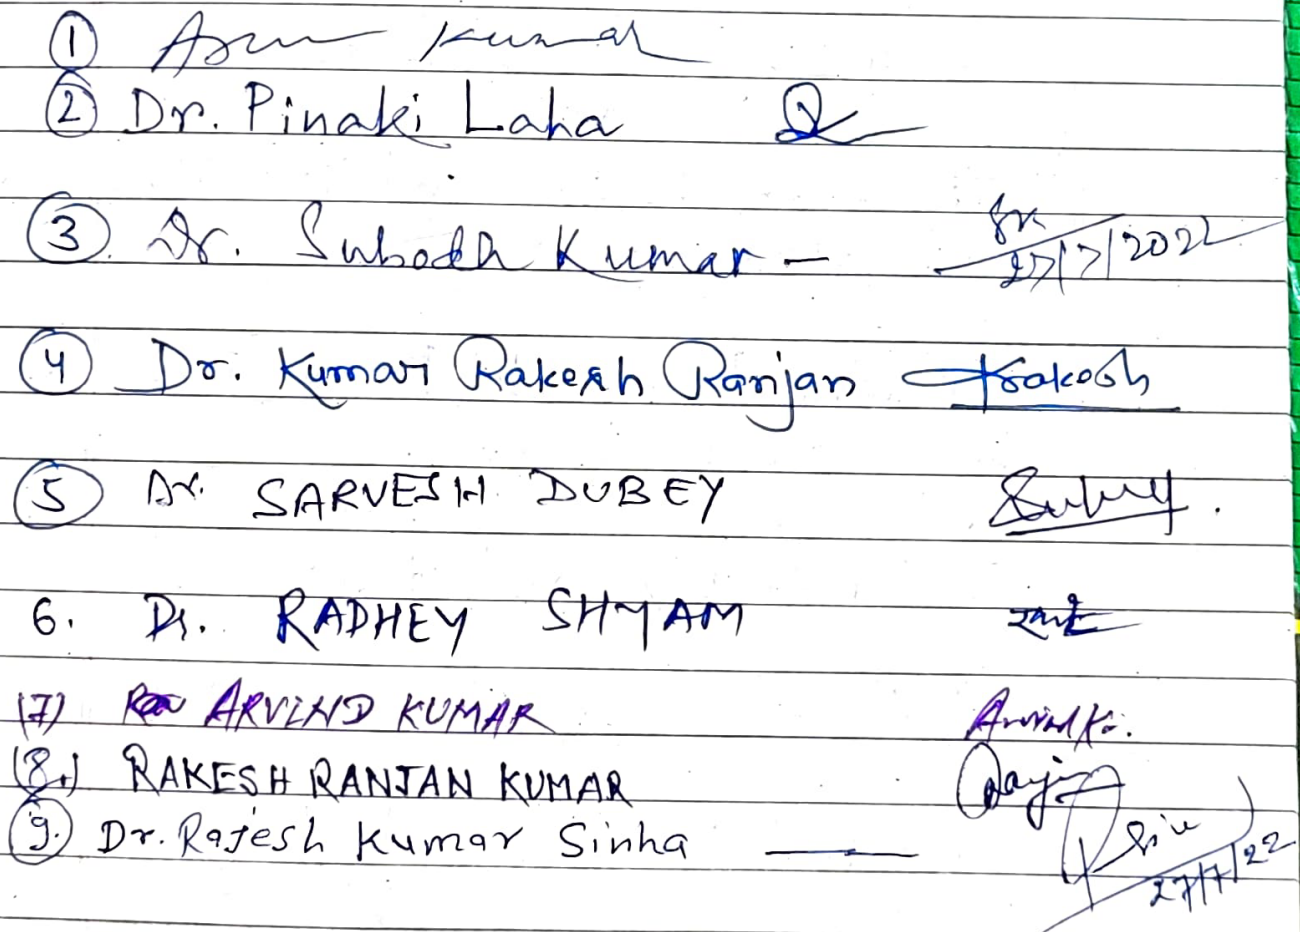 ① Arun Kumar
② Dr. Pinaki Laha
③ Dr. Subodh Kumar - 27/7/2022
④ Dr. Kumar Rakesh Ranjan Krakesh
⑤ Dr. SARVESH DUBEY
6. Dr. RADHEY SHYAM
(7) ARVIND KUMAR Arvind Kr.
(8.) RAKESH RANJAN KUMAR
⑨. Dr. Rajesh Kumar Sinha — 27/7/22